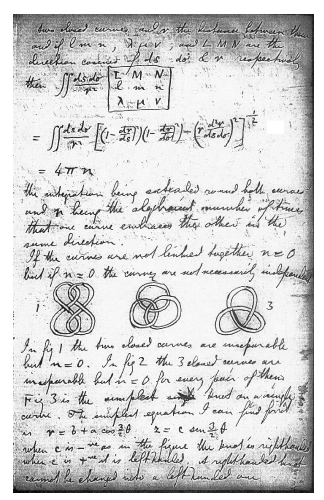 two closed curves, and r the distance between them
and if l m n, λ μ ν, and L M N are the
direction cosines of ds dσ & r respectively
then ∬ ds dσ / r² | L M N | l m n | λ μ ν |
= ∬ ds dσ / r² [(1 - dr/ds)(1 - dr/dσ) - (r d²r/ds dσ)²]^½
= 4πn
the integration being extended round both curves
and n being the algebraical number of times
that one curve embraces the other in the
same direction.
If the curves are not linked together n = 0
but if n = 0 the curves are not necessarily independent
1 3
In fig 1 the two closed curves are inseparable
but n = 0. In fig 2 the 3 closed curves are
inseparable but n = 0 for every pair of them
Fig 3 is the simplest knot on a single
curve. The simplest equation I can find for it
is r = b + a cos 3/2 θ z = c sin 3/2 θ
when c is - ve as in the figure the knot is right handed
when c is + ve it is left handed. A right handed knot
cannot be changed into a left handed one